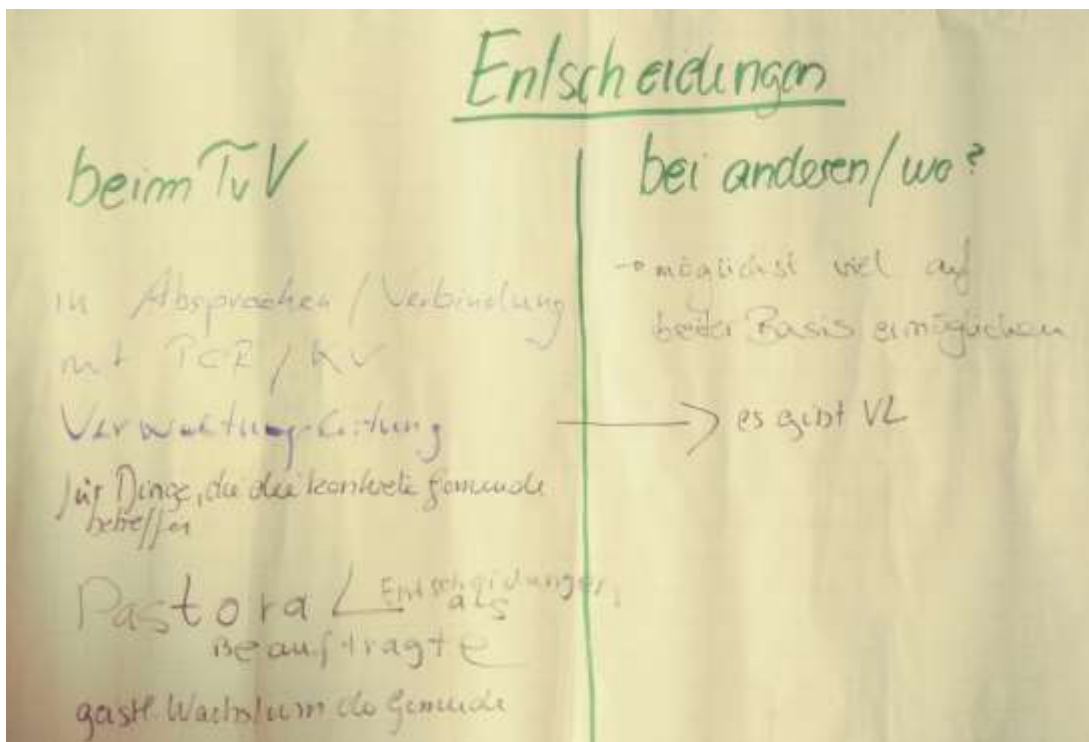 Entscheidungen
beim TvV
in Absprachen / Verbindung
mit PGR / KV
Verwaltungsleitung
für Dinge, die die konkrete Gemeinde
betreffen
Pastoral Entscheidungen
als
Beauftragte
geistl. Wachstum der Gemeinde
bei anderen/wo?
→ möglichst viel auf
Basis ermöglichen
→ es gibt VL